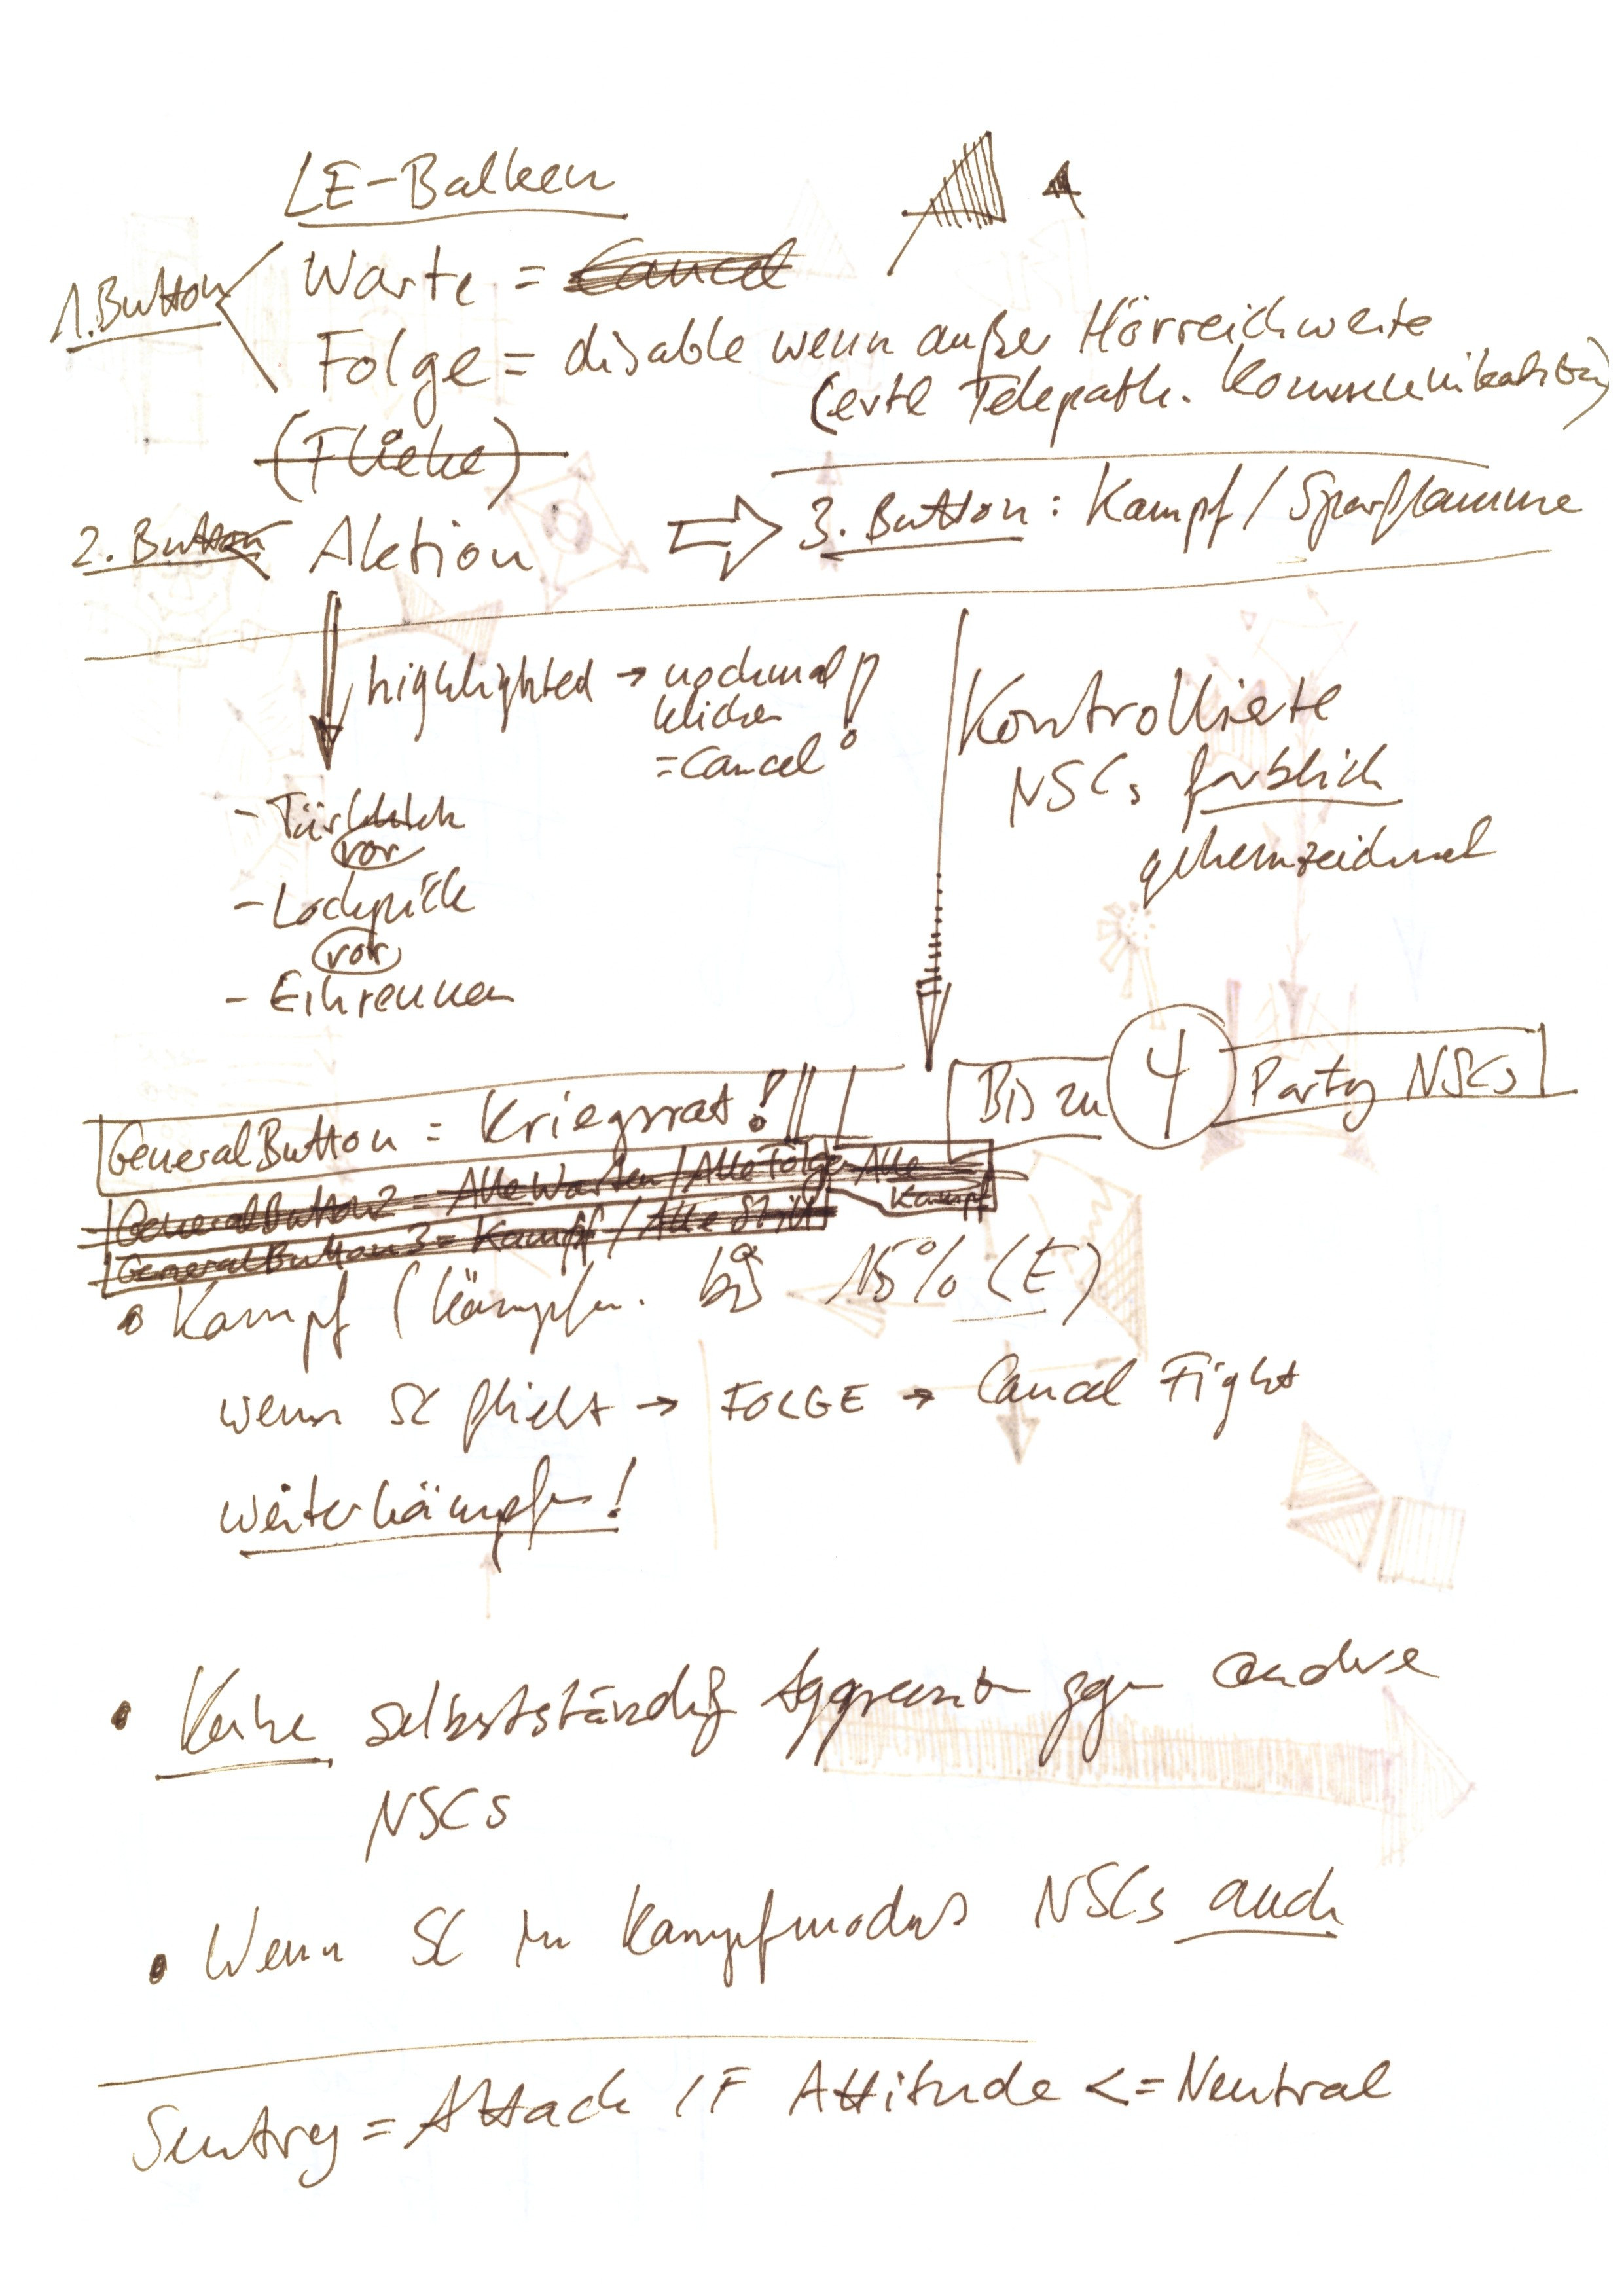 LE-Balken
1. Button
Warte = Cancel
Folge = disable wenn außer Hörreichweite
(evtl Telepath. Kommunikation)
(Fliehe)
2. Button Aktion
3. Button: Kampf / Sparflamme
highlighted → nochmal
klicken
= Cancel!
Kontrollierte
NSCs farblich
gekennzeichnet
- Tür
vor
- Lockpick
vor
- Einrennen
Bis zu 4 Party NSCs
GeneralButton = Kriegsrat!
GeneralButton2 = Alle Warten / Alle Folge Alle
Kampf
GeneralButton3 = Kampf / Alle Still
• Kampf (kämpfen bis 15% LE)
wenn SC flieht → FOLGE → Cancel Fight
weiterkämpfen!
• Keine selbstständig Aggression gegen andere
NSCs
• Wenn SC im Kampfmodus NSCs auch
Sentry = Attack IF Attitude <= Neutral